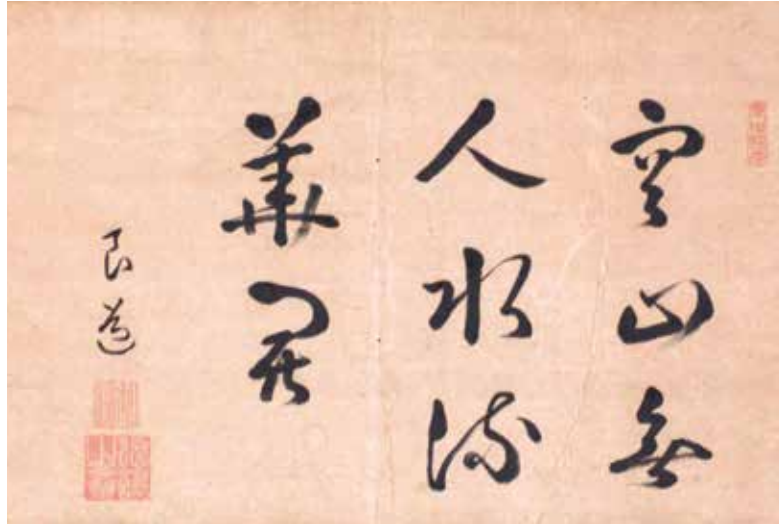 空山無
人水流
華開
良道